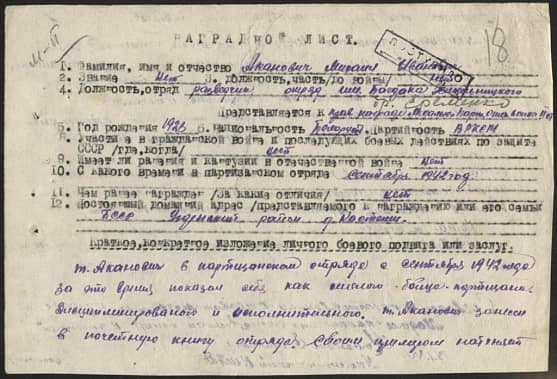 18
НАГРАДНОЙ ЛИСТ.
1. Фамилия, имя и отчество Аканович Михаил Иванович
2. Звание Нет 3. Должность, часть/до войны/ нет
4. Должность, отряд разведчик отряд им. Богдана Хмельницкого
бр.
Представляется к
5. Год рождения 1923 6. Национальность Белорус 7. Партийность ВЛКСМ
8. Участие в гражданской войне и последующих боевых действиях по защите
СССР /где, когда/ нет
9. Имеет ли ранения и контузии в отечественной войне Нет
10. С какого времени в партизанском отряде сентября 1942 год
11. Чем ранее награжден /за какие отличия/ нет
12. Постоянный домашний адрес /представляемого к награждению или его семьи
БССР Узденский район д.
Краткое, конкретное изложение личного боевого подвига или заслуг.
т. Аканович в партизанском отряде с сентября 1942 года
за это время показал себя как смелого бойца-партизана
дисциплинированного и исполнительного. т. Аканович занесен
в почетную книгу отряда. Своим